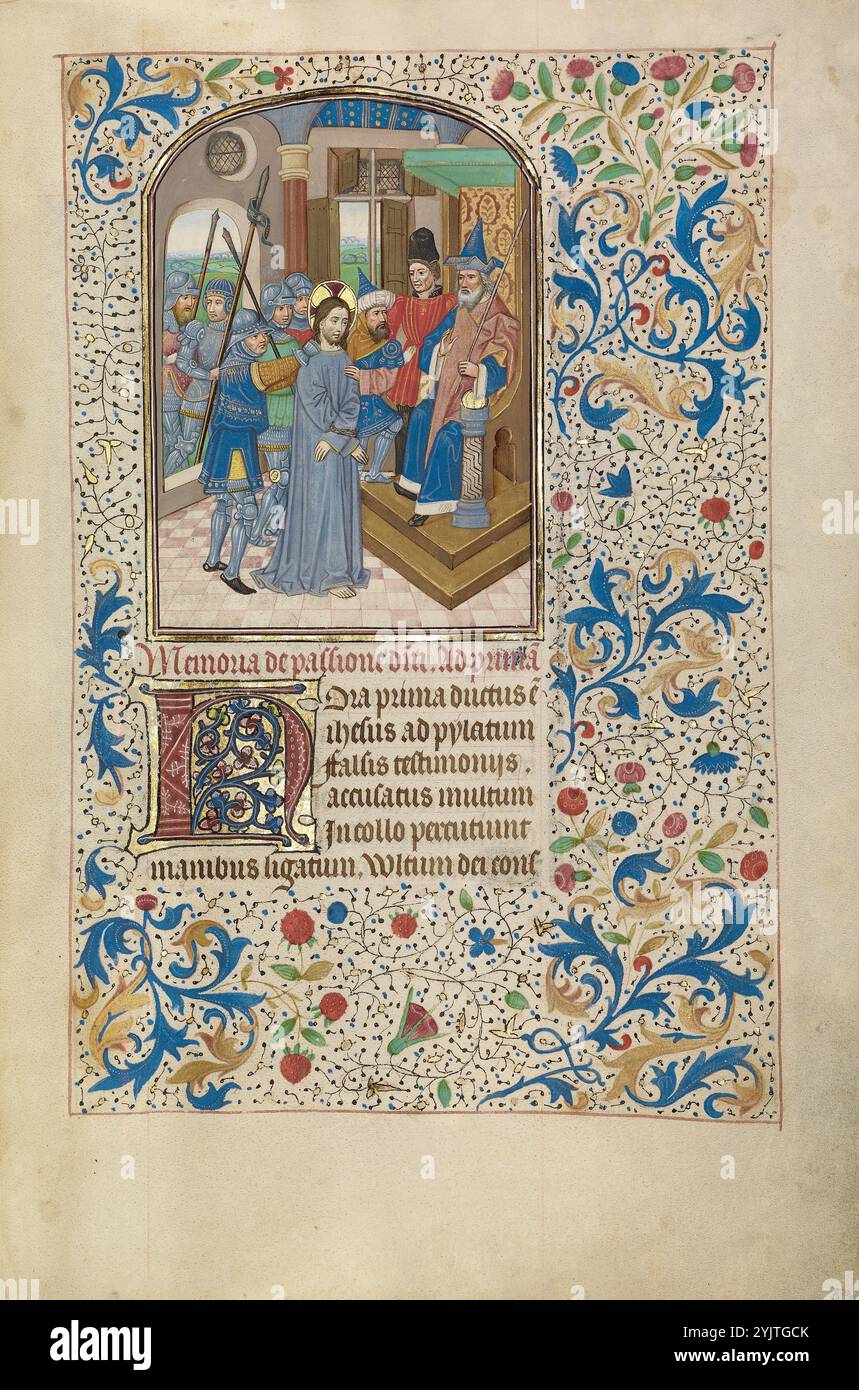 Memoria de passione dni. Ad primā
Hora prima ductus ē
ihesus ad pylatum
ffalsis testimonijs.
accusatus multum
In collo percutiunt
manibus ligatum. Wltum dei cons
alamy
Image ID: 2YJTGCK
www.alamy.com